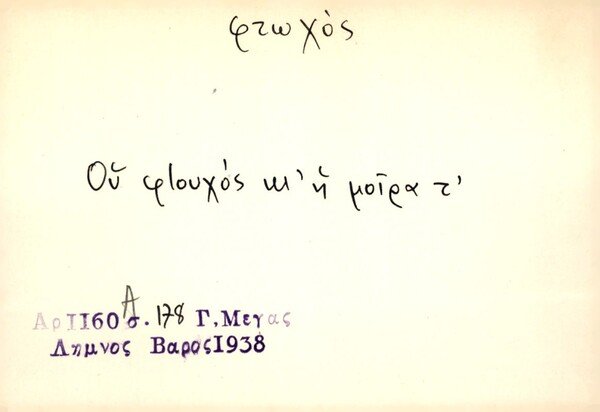 φτωχός
Οὕ φτουχός κι' ἡ μοῖρα τ'
Αρ 1160 Α σ. 178 Γ. Μεγας
Λημνος Βαρος 1938